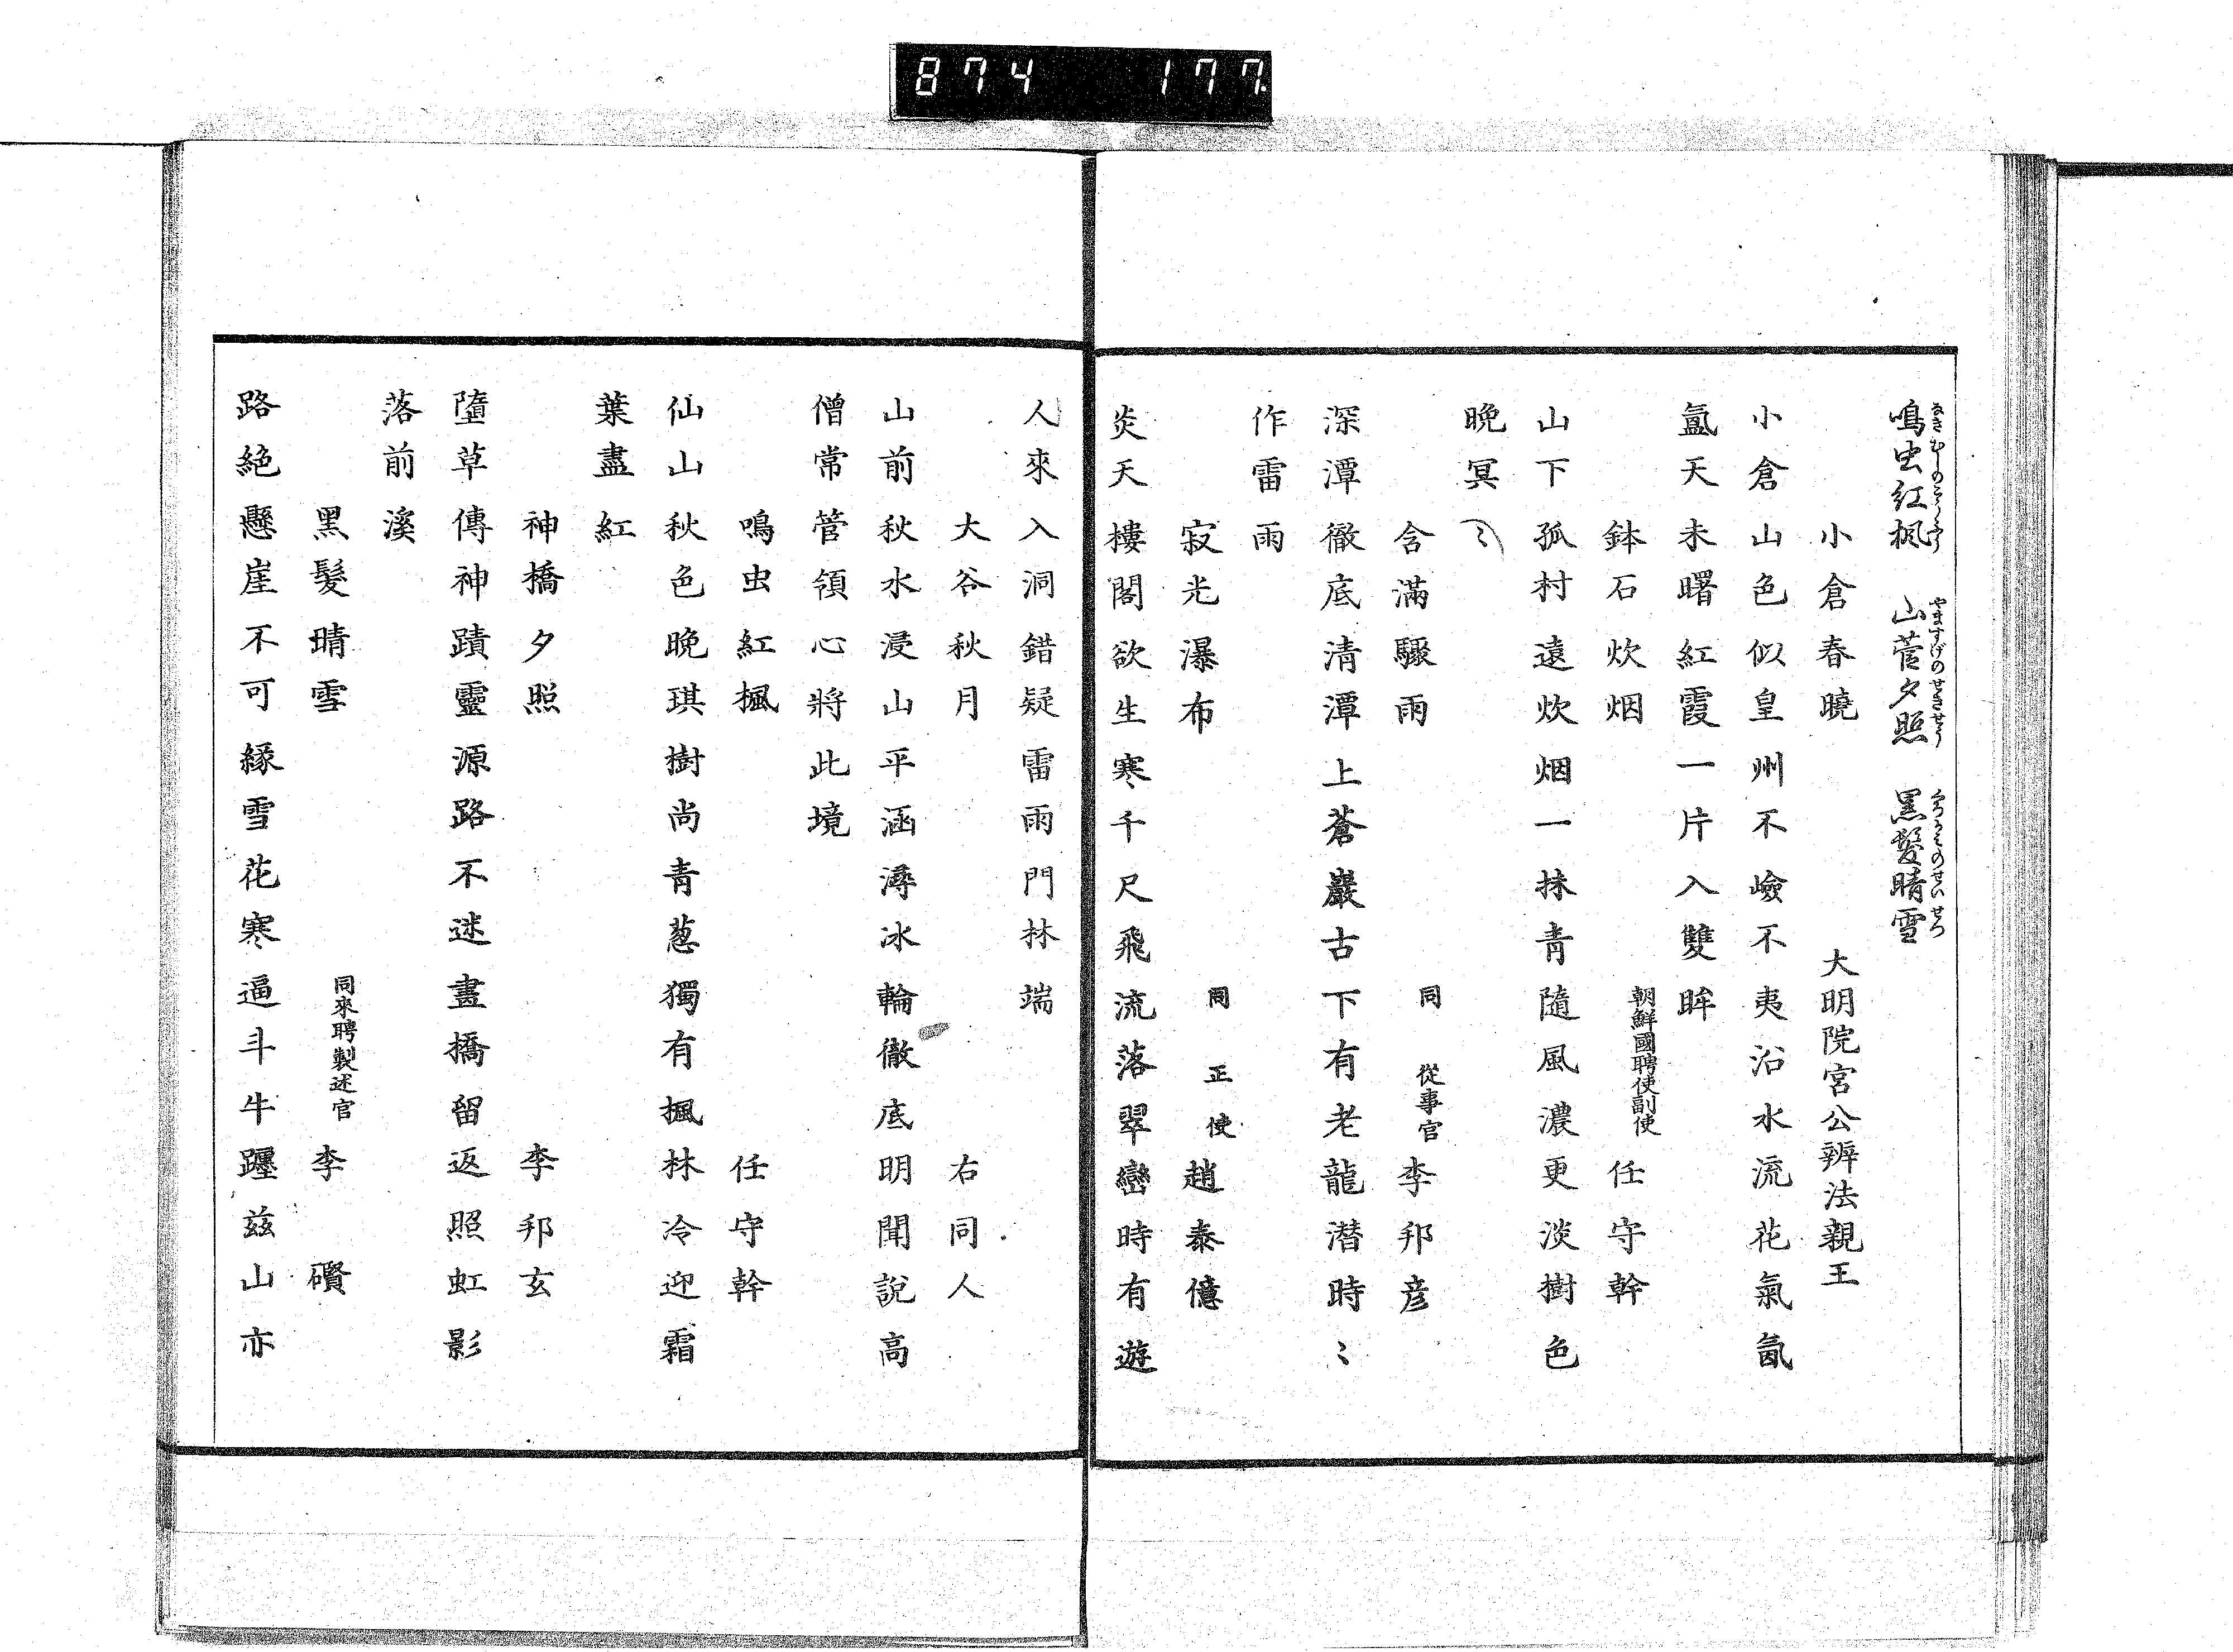 874 177
鳴虫紅楓 山菅夕照 黒髪晴雪
小倉春曉 大明院宮公辨法親王
小倉山色似皇州不嶮不夷沿水流花氣氤
氳天未曙紅霞一片入雙眸
鉢石炊烟 朝鮮國聘使副使 任守幹
山下孤村遠炊烟一抹青隨風濃更淡樹色
晩冥〻
含滿驟雨 同 從事官 李邦彦
深潭徹底清潭上蒼巖古下有老龍潜時〻
作雷雨
寂光瀑布 同 正使 趙泰億
炎天樓閣欲生寒千尺飛流落翠巒時有遊
人來入洞錯疑雷雨門林端
大谷秋月 右同人
山前秋水浸山平涵潯冰輪徹底明聞說高
僧常管領心將此境
鳴虫紅楓 任守幹
仙山秋色晩琪樹尚青葱獨有楓林冷迎霜
葉盡紅
神橋夕照 李邦玄
墮草傳神蹟靈源路不迷畫橋留返照虹影
落前溪
黑髮晴雪 同來聘製述官 李礥
路絶懸崖不可緣雪花寒逼斗牛躔茲山亦